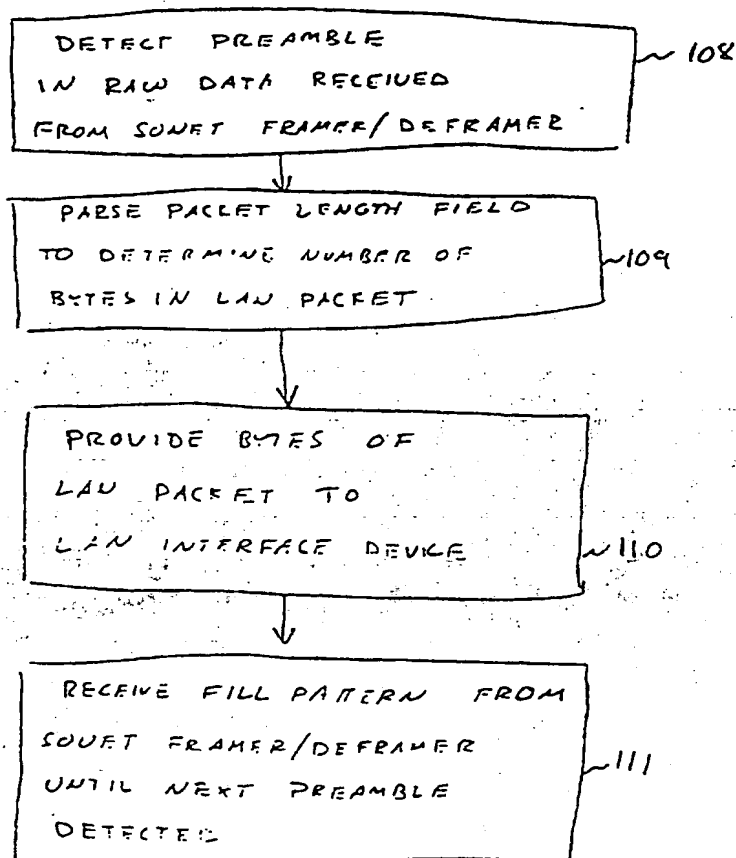 DETECT PREAMBLE
IN RAW DATA RECEIVED
FROM SONET FRAMER/DEFRAMER
108
PARSE PACKET LENGTH FIELD
TO DETERMINE NUMBER OF
BYTES IN LAN PACKET
109
PROVIDE BYTES OF
LAN PACKET TO
LAN INTERFACE DEVICE
110
RECEIVE FILL PATTERN FROM
SONET FRAMER/DEFRAMER
UNTIL NEXT PREAMBLE
DETECTED
111